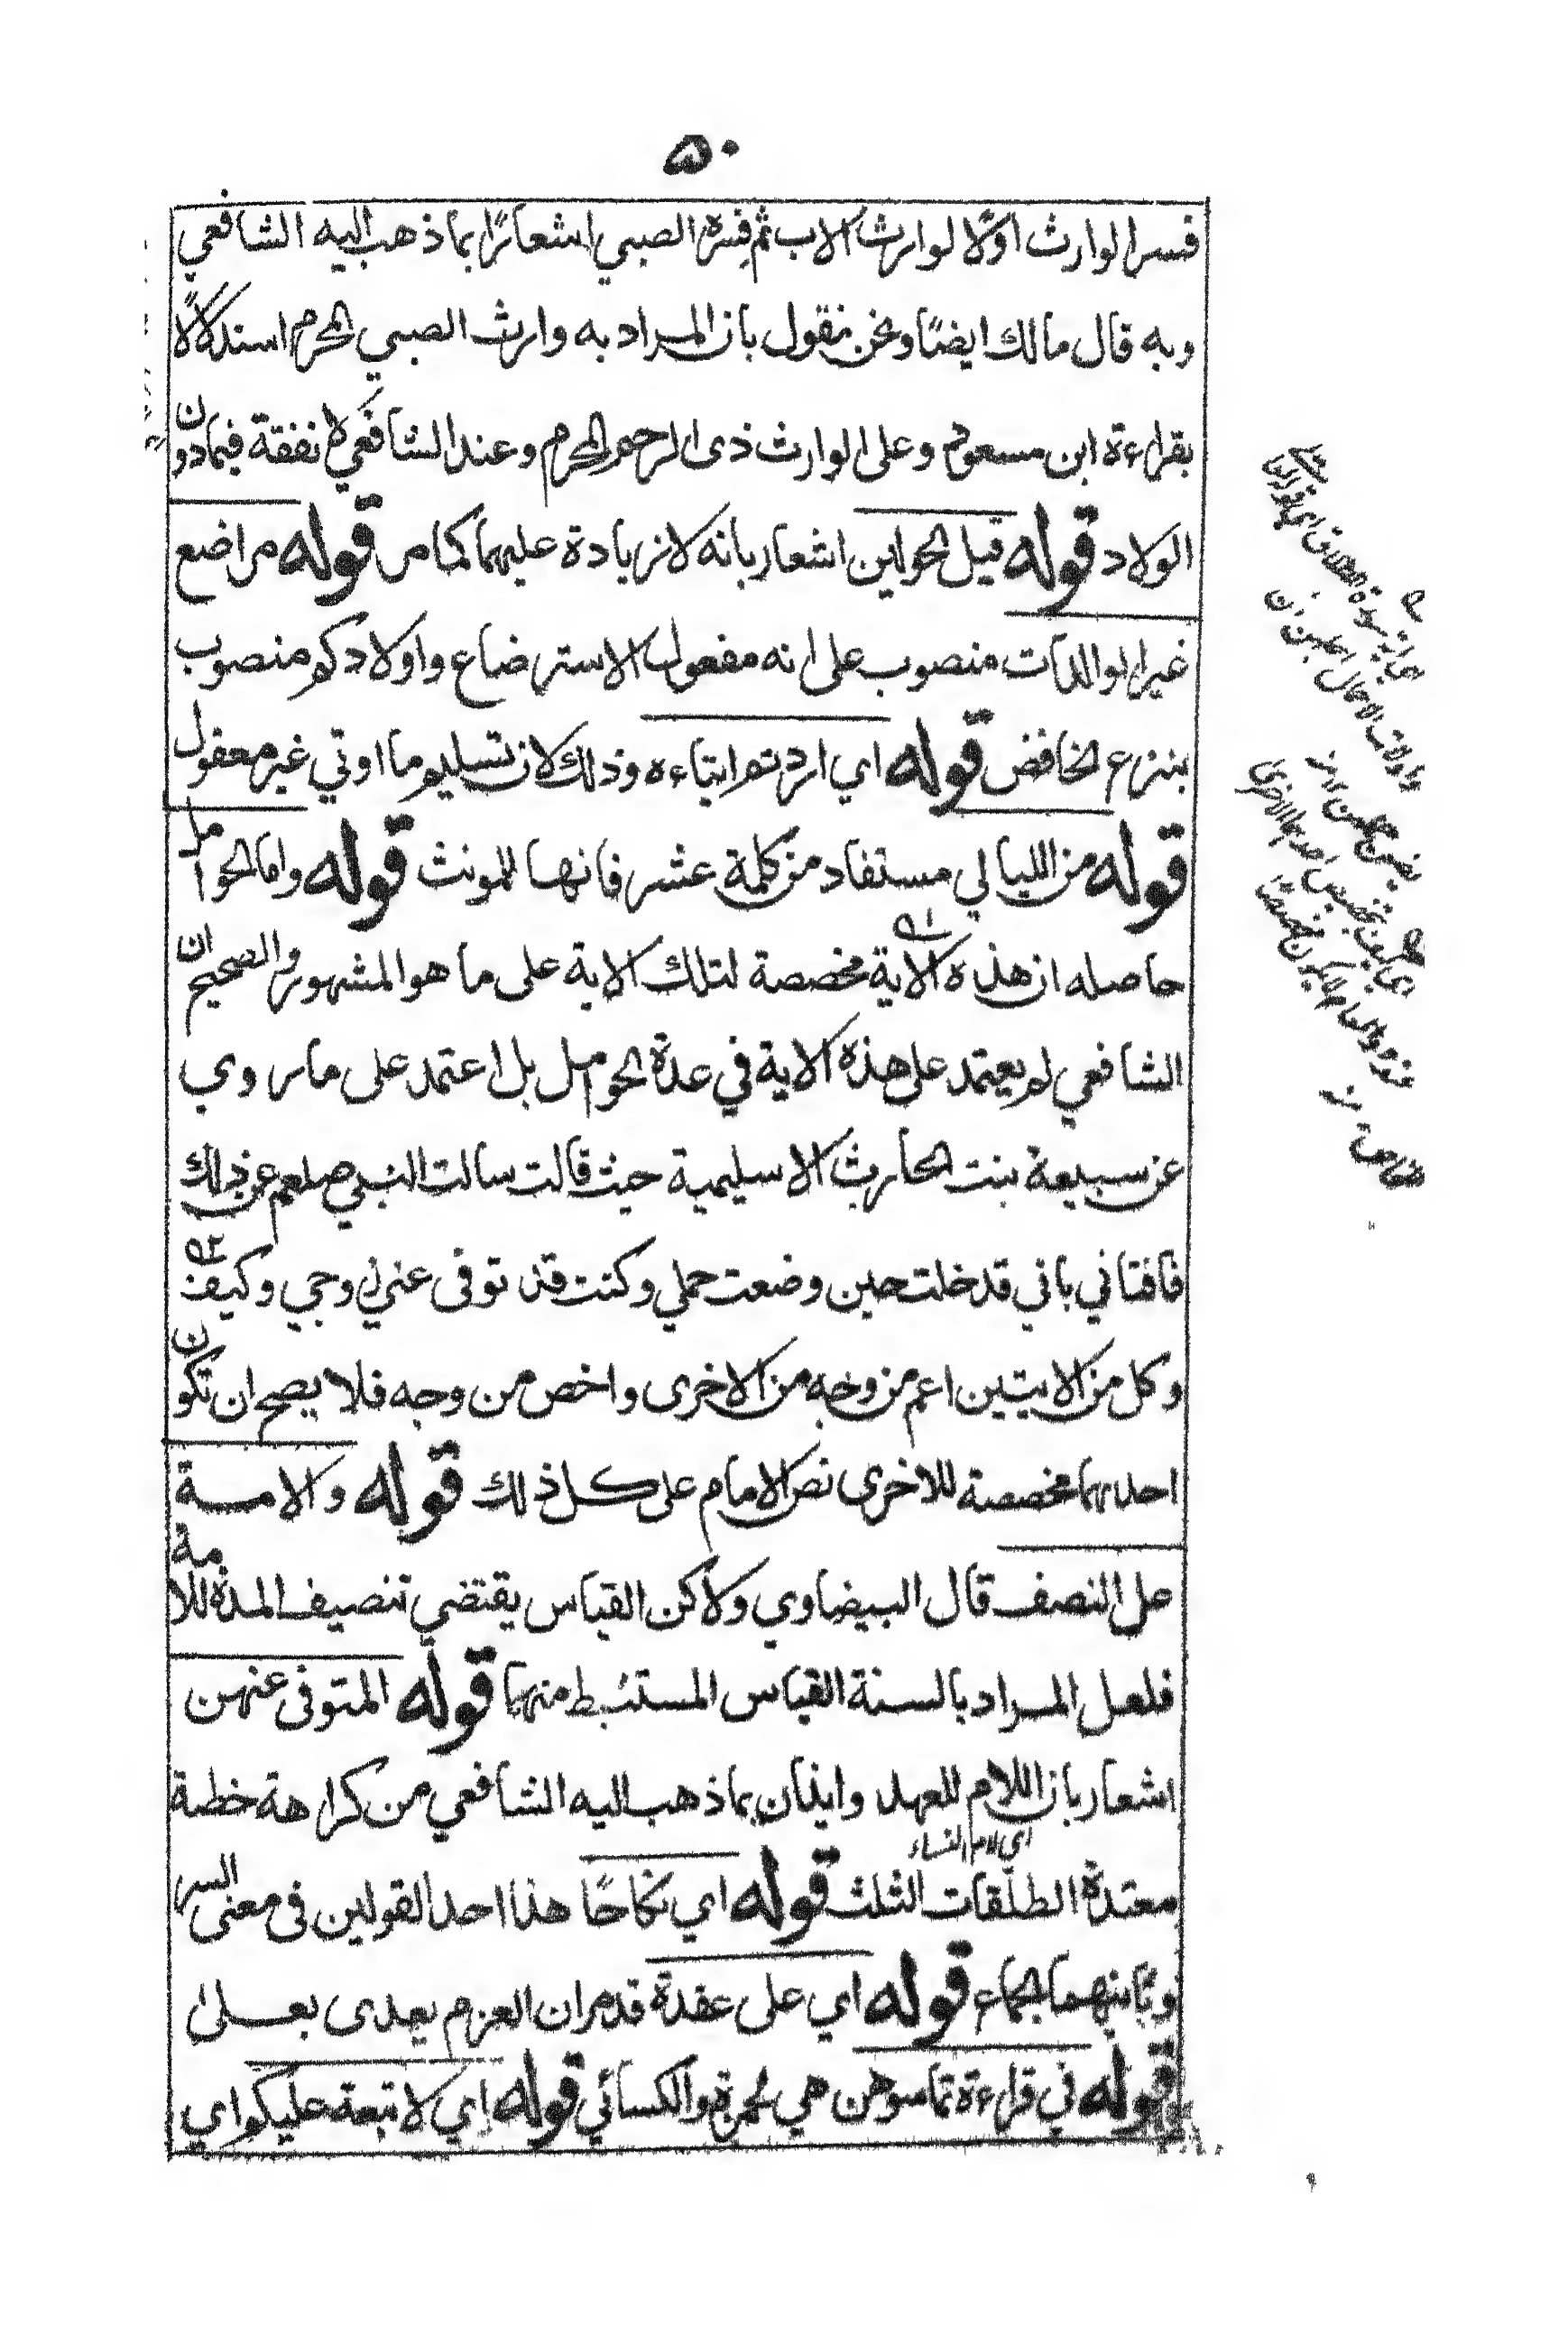 ۵۰
فسر الوارث اوّلا لوارث الاب ثم فسره الصبي اشعارًا بما ذهب اليه الشافعي
وبه قال مالك ايضًا ونحن نقول بان المراد به وارث الصبي المحرم استدلالًا
بقراءة ابن مسعود وعلى الوارث ذى الرحم المحرم وعند الشافعي لا نفقة فيما دون
الولاد قوله قيل الحولين اشعار بانه لا زيادة عليهما كما مر قوله مراضع
غير الوالدات منصوب على انه مفعول الاسترضاع واولادكم منصوب
بنزع الخافض قوله اي اردتم ايتاءه وذلك لان تسليم ما اوتي غير معقول
قوله من الليالي مستفاد من كلمة عشر فانها للمونث قوله واما الحوامل
حاصله ان هذه الاية مخصصة لتلك الاية على ما هو المشهور والصحيح ان
الشافعي لم يعتمد على هذه الاية في عدة الحوامل بل اعتمد على ما روي
عن سبيعة بنت الحارث الاسليمية حيث قالت سالت النبي صلعم عن ذلك
فافتاني باني قد خلت حين وضعت حملي وكنت قد توفى عني زوجي وكيف
وكل من الايتين اعم من وجه من الاخرى واخص من وجه فلا يصح ان تكون
احدهما مخصصة للاخرى نص الامام على كل ذلك قوله والامة
على النصف قال البيضاوي ولاكن القياس يقتضي تنصيف المدة للامة
فلعل المراد بالسنة القياس المستنبط منهما قوله المتوفى عنهن
اشعار بان اللام للعهد وايذان بما ذهب اليه الشافعي من كراهة خطبة
اي لام النساء
معتدة الطلقات الثلث قوله اي نكاحًا هذا احد القولين في معنى السر
وثانيهما الجماع قوله اي على عقدة قد مر ان العزم يعدى بعلى
قوله في قراءة تماسوهن هي لحمزة والكسائي قوله اي لا تبعة عليكم اي